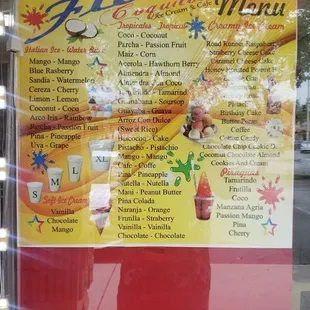 Coqui
Ice Cream & Cafe
Menu
Italian Ice - Water Base
Mango - Mango
Blue Rasberry
Sandia - Watermelon
Cereza - Cherry
Limon - Lemon
Coconut - Coco
Arco Iris - Rainbow
Parcha - Passion Fruit
Pina - Pineapple
Uva - Grape
S
M
L
XL
Soft Ice Cream
Vainilla
Chocolate
Mango
Tropicales - Tropical
Coco - Coconut
Parcha - Passion Fruit
Maiz - Corn
Acerola - Hawthorn Berry
Almendra - Almond
Almendra Con Coco
Tamarindo - Tamarind
Guanabana - Soursop
Guayaba - Guava
Arroz Con Dulce
(Sweet Rice)
Bizcocho - Cake
Pistacho - Pistachio
Mango - Mango
Cafe - Coffee
Pina - Pineapple
Nutella - Nutella
Mani - Peanut Butter
Pina Colada
Naranja - Orange
Frutilla - Straberry
Vainilla - Vainilla
Chocolate - Chocolate
Creamy Ice Cream
Road Runner Raspberry
Strawberry Cheese Cake
Caramel Cheese Cake
Pistachio
Birthday Cake
Butter Pecan
Coffee
Cotton Candy
Chocolate Chip Cookie D.
Coconut Chocolate Almond
Cookies And Cream
Paraguas
Tamarindo
Frutilla
Coco
Manzana Agria
Passion Mango
Pina
Cherry